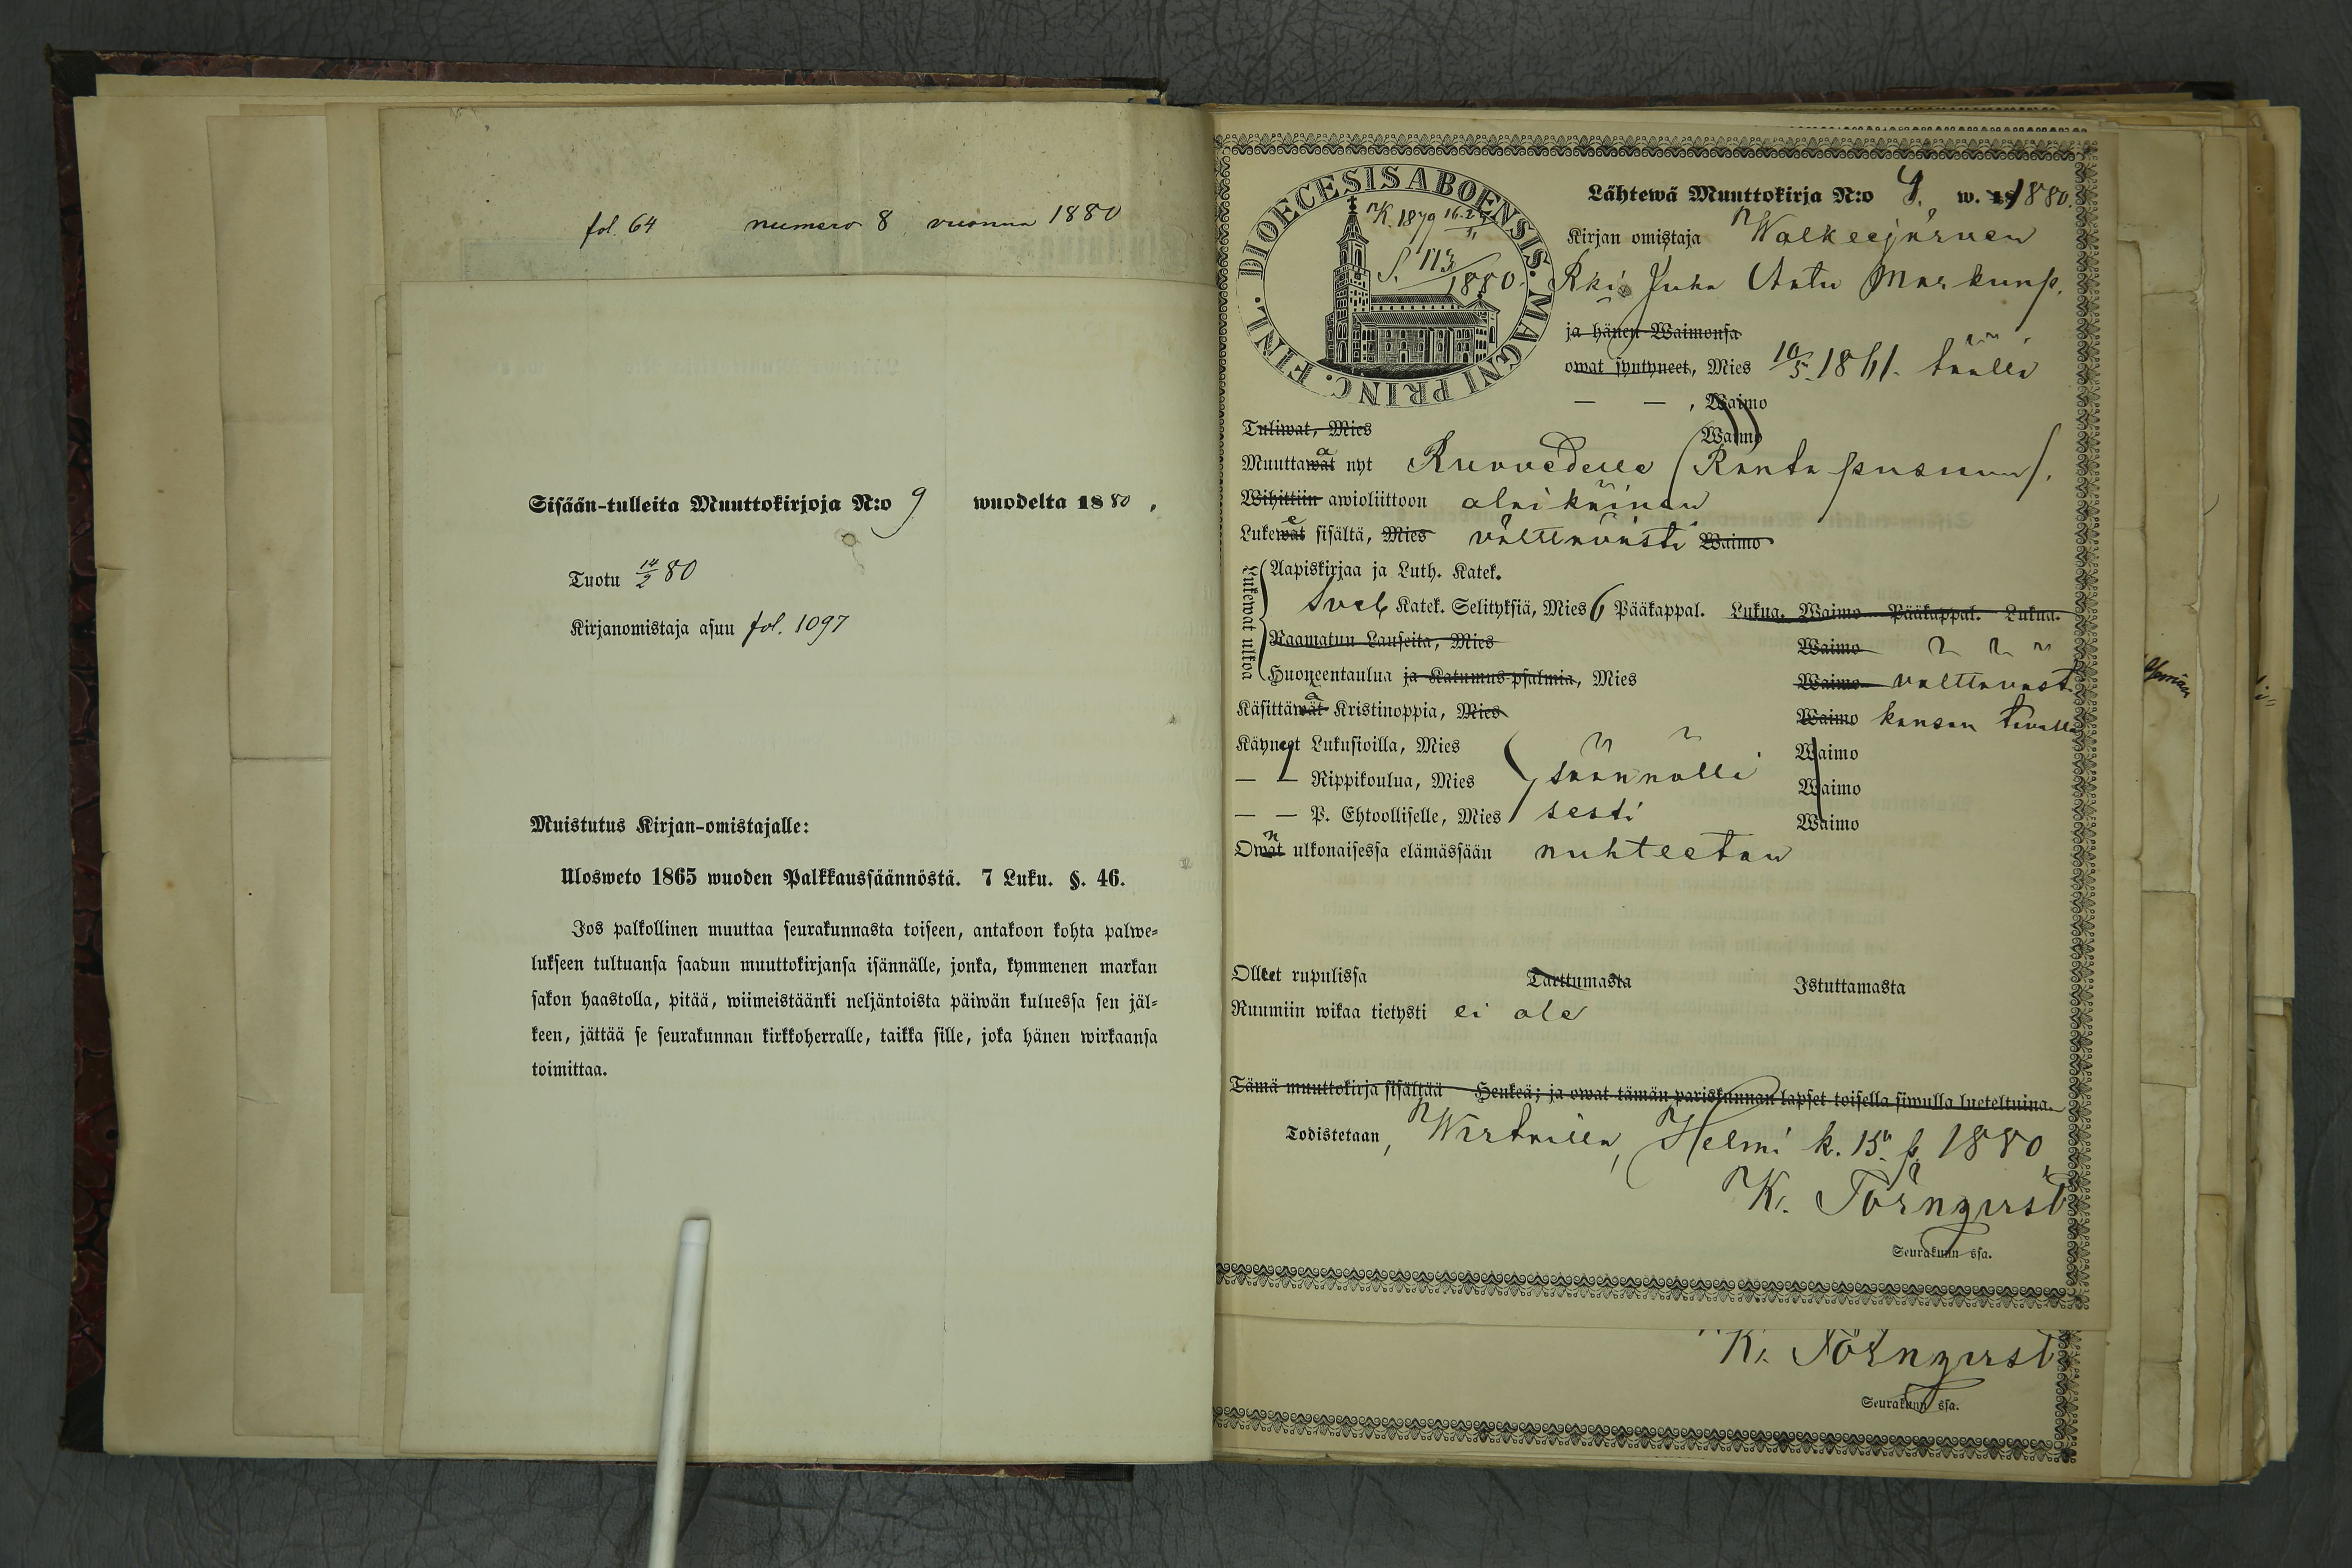 fol. 64 numero 8 vuonna 1880
Sisään-tulleita Muuttokirjoja N:o 9 wuodelta 1880,
Tuotu 14/2 80
Kirjanomistaja asuu fol. 1097
Muistutus Kirjan-omistajalle:
Ulosweto 1865 wuoden Palkkaussäännöstä. 7 Luku. §. 46.
Jos palkollinen muuttaa seurakunnasta toiseen, antakoon kohta palwe=
lukseen tultuansa saadun muuttokirjansa isännälle, jonka, kymmenen markan
sakon haastolla, pitää, wiimeistäänki neljäntoista päiwän kuluessa sen jäl=
keen, jättää se seurakunnan kirkkoherralle, taikka sille, joka hänen wirkaansa
toimittaa.
DIOECESIS ABOENSIS. MAGNI PRINC. FINL.
S. 113/1880.
Lähtewä Muuttokirja N:o 9. w. 1880.
Kirjan omistaja Walkeejärven
Rki Juha Antu Markunp.
ja hänen Waimonsa
owat syntyneet, Mies 10/5 1861. täällä
— — , Waimo
Tuliwat, Mies Waimo
Muuttawat nyt Ruovedelle (Rantapusuun).
Wihittiin awioliittoon alaikäinen
Lukewat sisältä, Mies välttävästi Waimo
Lukewat ulkoa
Aapiskirjaa ja Luth. Katek.
Sveb Katek. Selityksiä, Mies 6 Pääkappal. Lukua. Waimo Pääkappal. Lukua.
Raamatun Lauseita, Mies Waimo
Huoneentaulua ja Katumus-psalmia, Mies Waimo välttävästi
Käsittäwät Kristinoppia, Mies Waimo kansan tavalla
Käyneet Lukusioilla, Mies Waimo
— — Rippikoulua, Mies säännölli Waimo
— — P. Ehtoolliselle, Mies sesti Waimo
Owat ulkonaisessa elämässään nuhteeton
Olleet rupulissa Tarttumasta Istuttamasta
Ruumiin wikaa tietysti ei ole
Tämä muuttokirja sisältää Henkeä; ja owat tämän pariskunnan lapset toisella siwulla lueteltuina.
Todistetaan, Wirtailla, Helmi k. 15 p. 1880
K. Törnqvist
Seurakunn ssa.
K. Törnqvist
Seurakunn ssa.